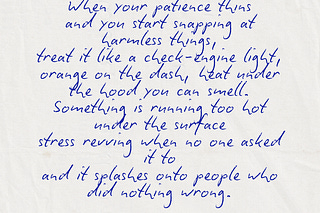 When your patience thins
and you start snapping at
harmless things,
treat it like a check-engine light,
orange on the dash, heat under
the hood you can smell.
Something is running too hot
under the surface
stress revving when no one asked
it to
and it splashes onto people who
did nothing wrong.